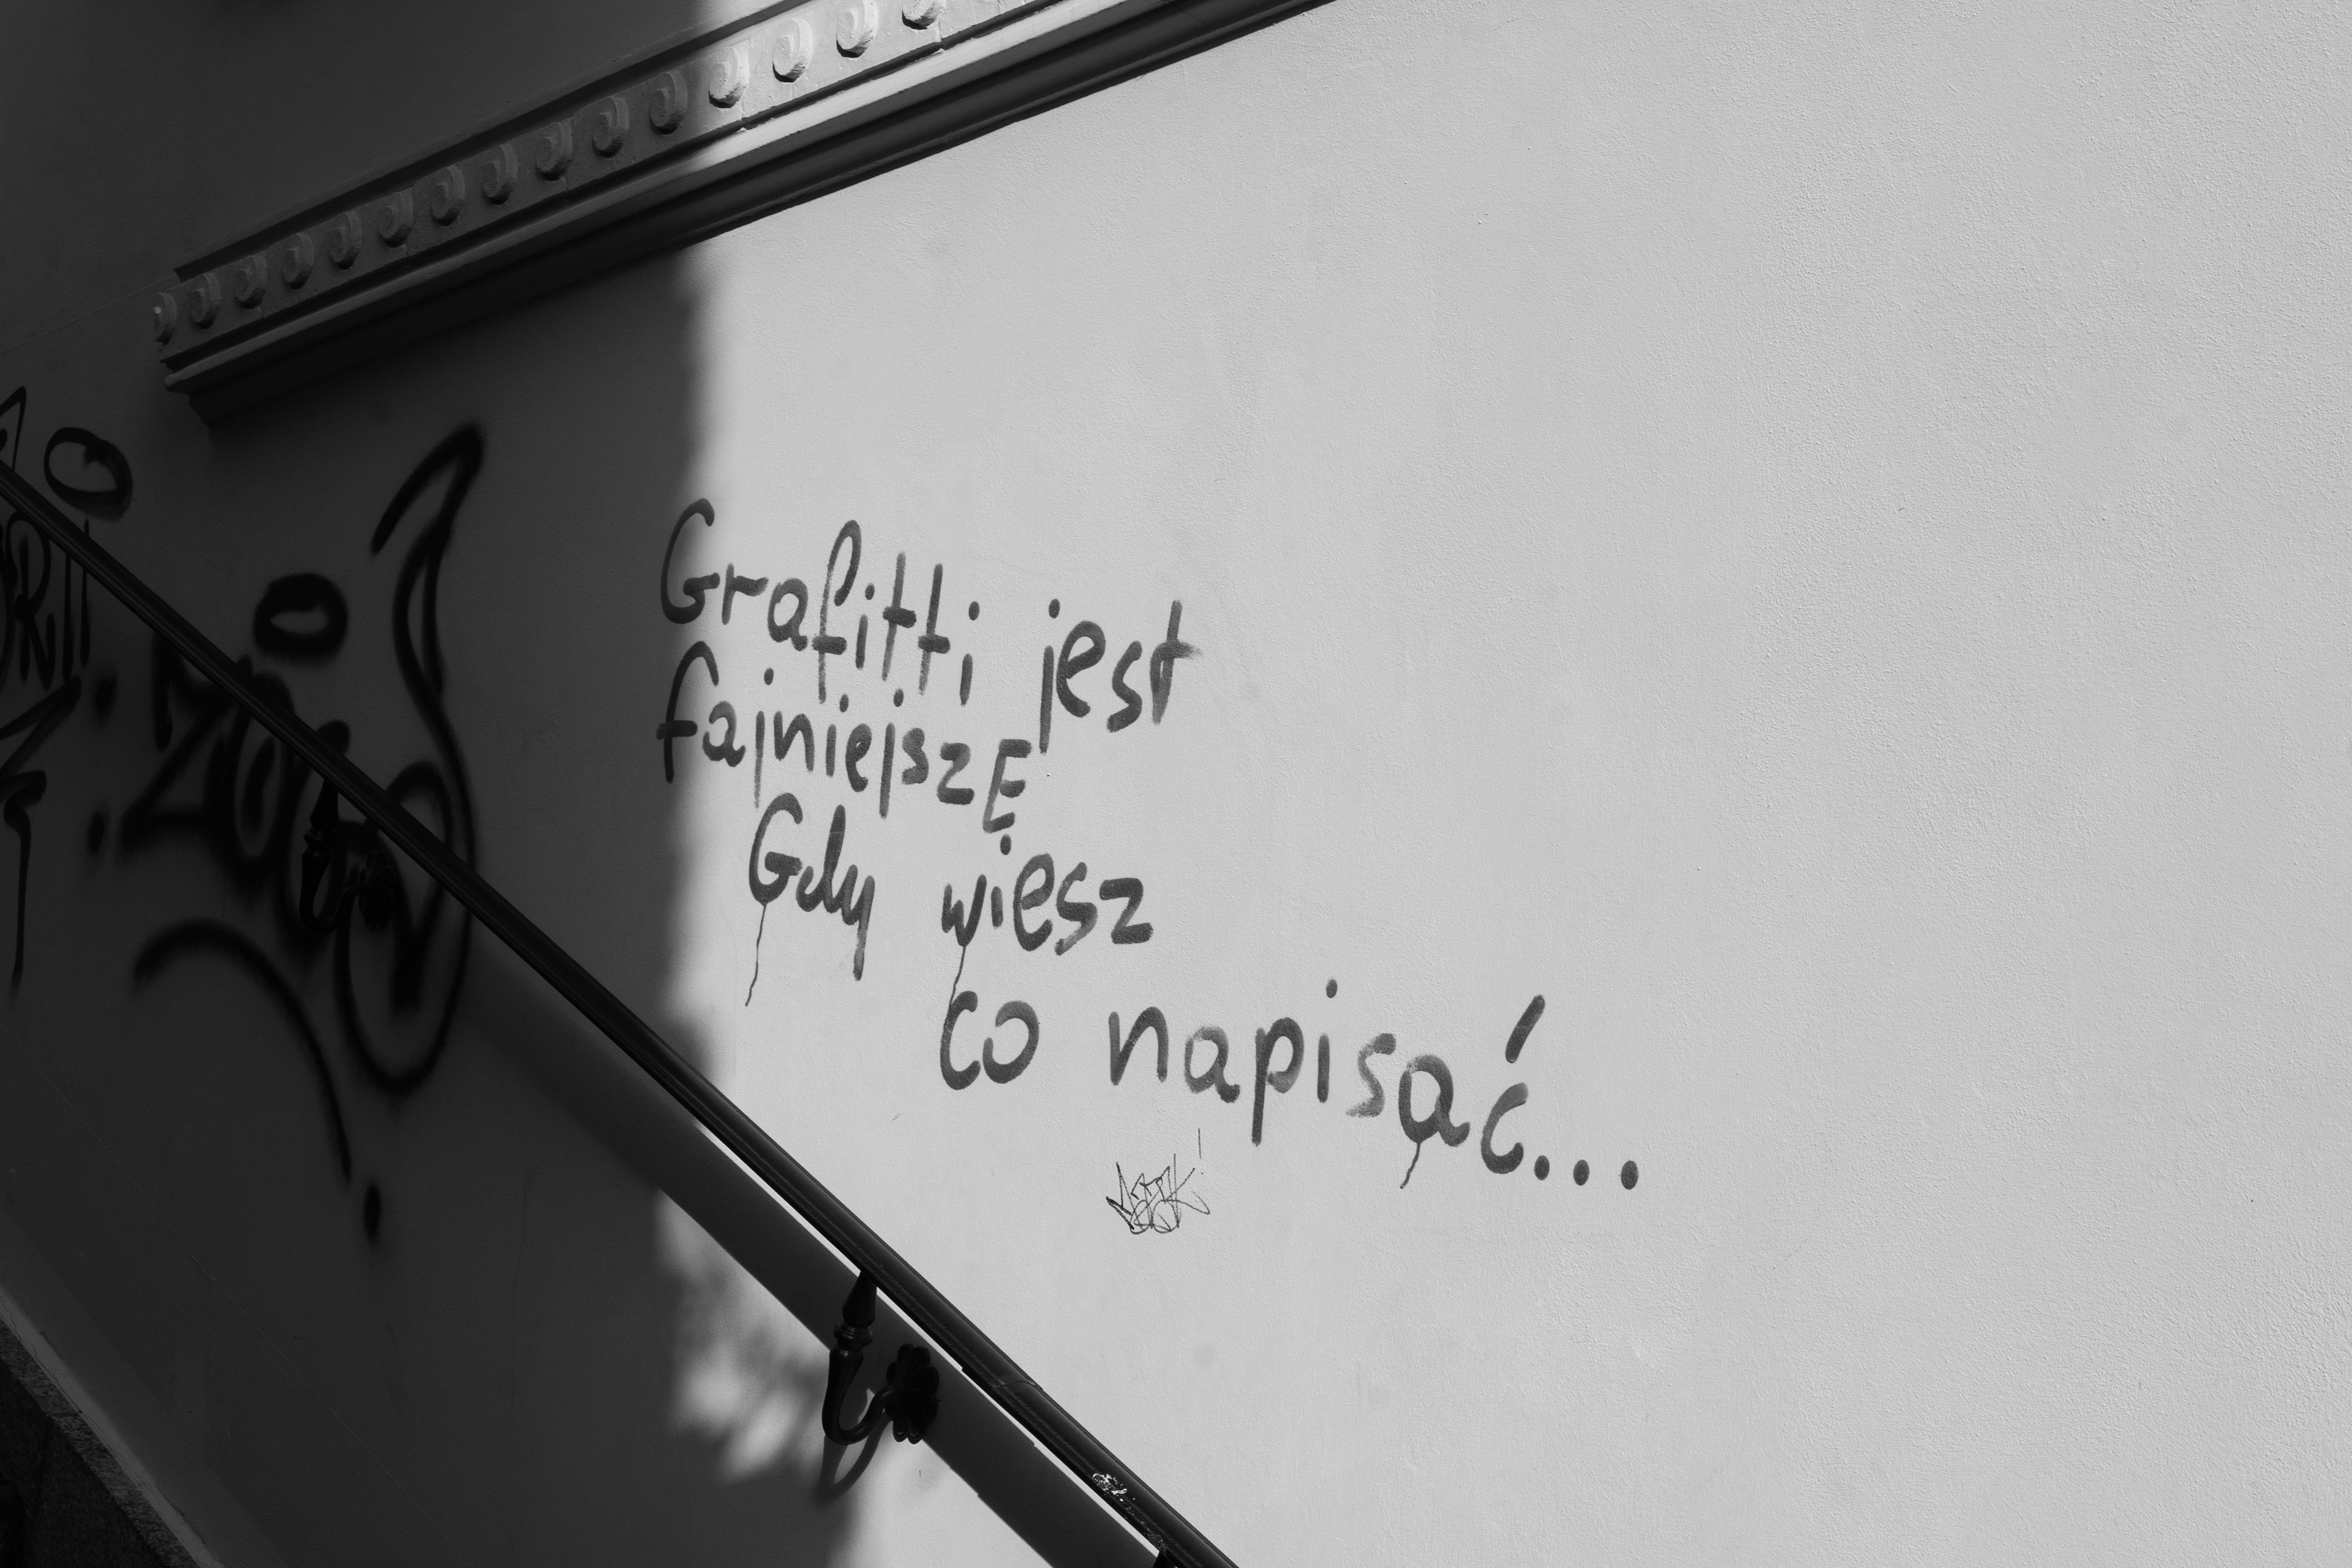 Grafitti jest
fajniejszE
Gdy wiesz
co napisać...